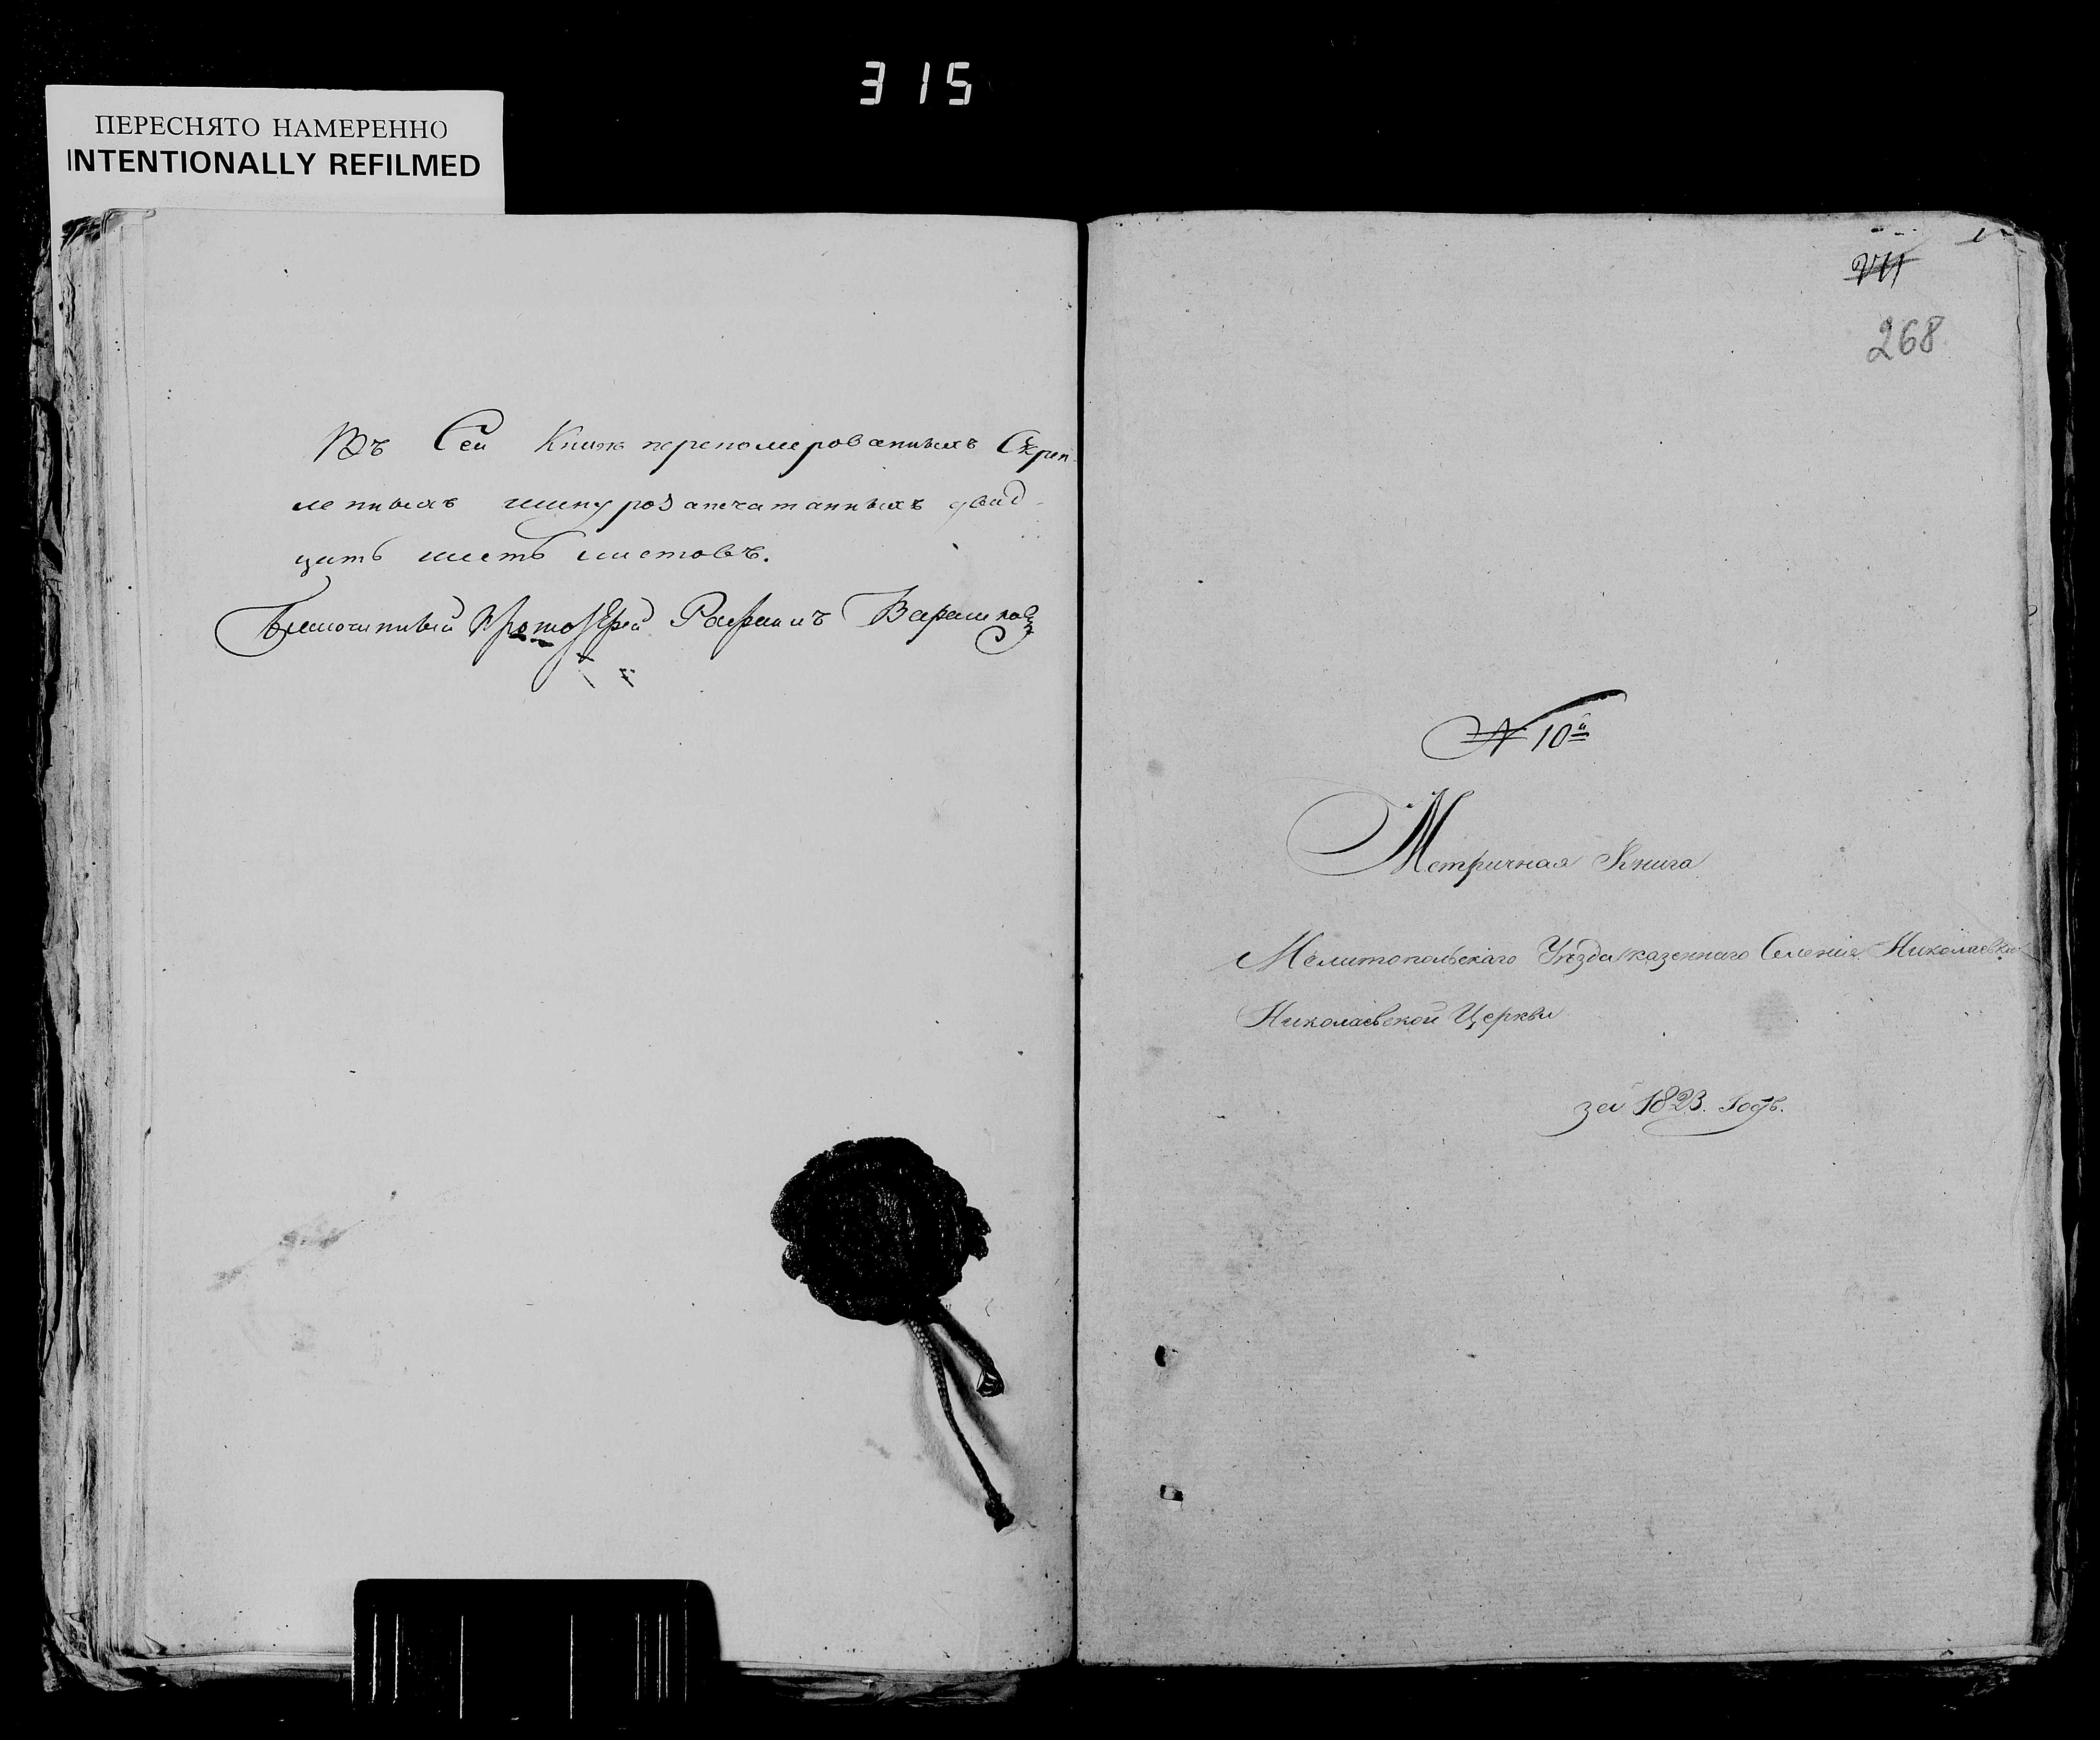 315
ПЕРЕСНЯТО НАМЕРЕННО
INTENTIONALLY REFILMED
Въ Сей Книгѣ перепомерованныхъ Скреп-
ленныхъ шнурозапечатанныхъ двад-
цать шесть листовъ.
Благочинный Протоіерей
268
N 10й
Метричная Книга
Мелитопольскаго Уѣзда казеннаго Селенія Николаевки
Николаевской Церкви
за 1823. Годъ.